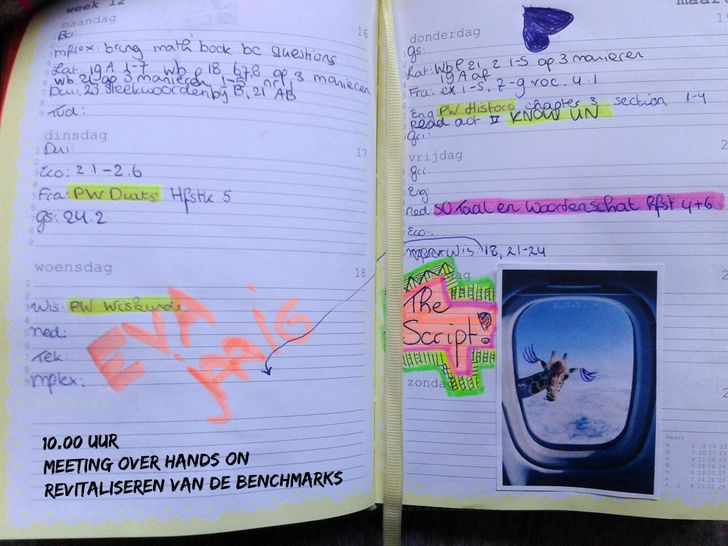 week 12
maandag
16
Bo:
mplex: breng math book bc questions
Lat: 19A 1-7 wb p. 18, 6,7,8 op 3 manieren
wb 21 op 3 manieren 1-5
Dui: 23 steekwoorden bij B, 21 AB
Tud:
dinsdag
17
Dui:
Eco: 2.1-2.6
Fra: PW Duits Hfstk 5
gs: 24.2
woensdag
18
Wis: PW Wiskunde
ned:
Tek:
mplex:
EVA
JARIG
10.00 UUR
MEETING OVER HANDS ON
REVITALISEREN VAN DE BENCHMARKS
maart
donderdag
gs:
Lat: Wb P. 21, 2 1-5 op 3 manieren
19A af
Fra: ex 1-5, 7-9 voc. 4.1
Eng: PW History chapter 3 section 1-4
Read act II KNOW UN
vrijdag
Eng:
ned: SO Taal en Woordenschat hfst 4+6
Eco:
Wis: 18, 21-24
The
Script!
zondag
maart